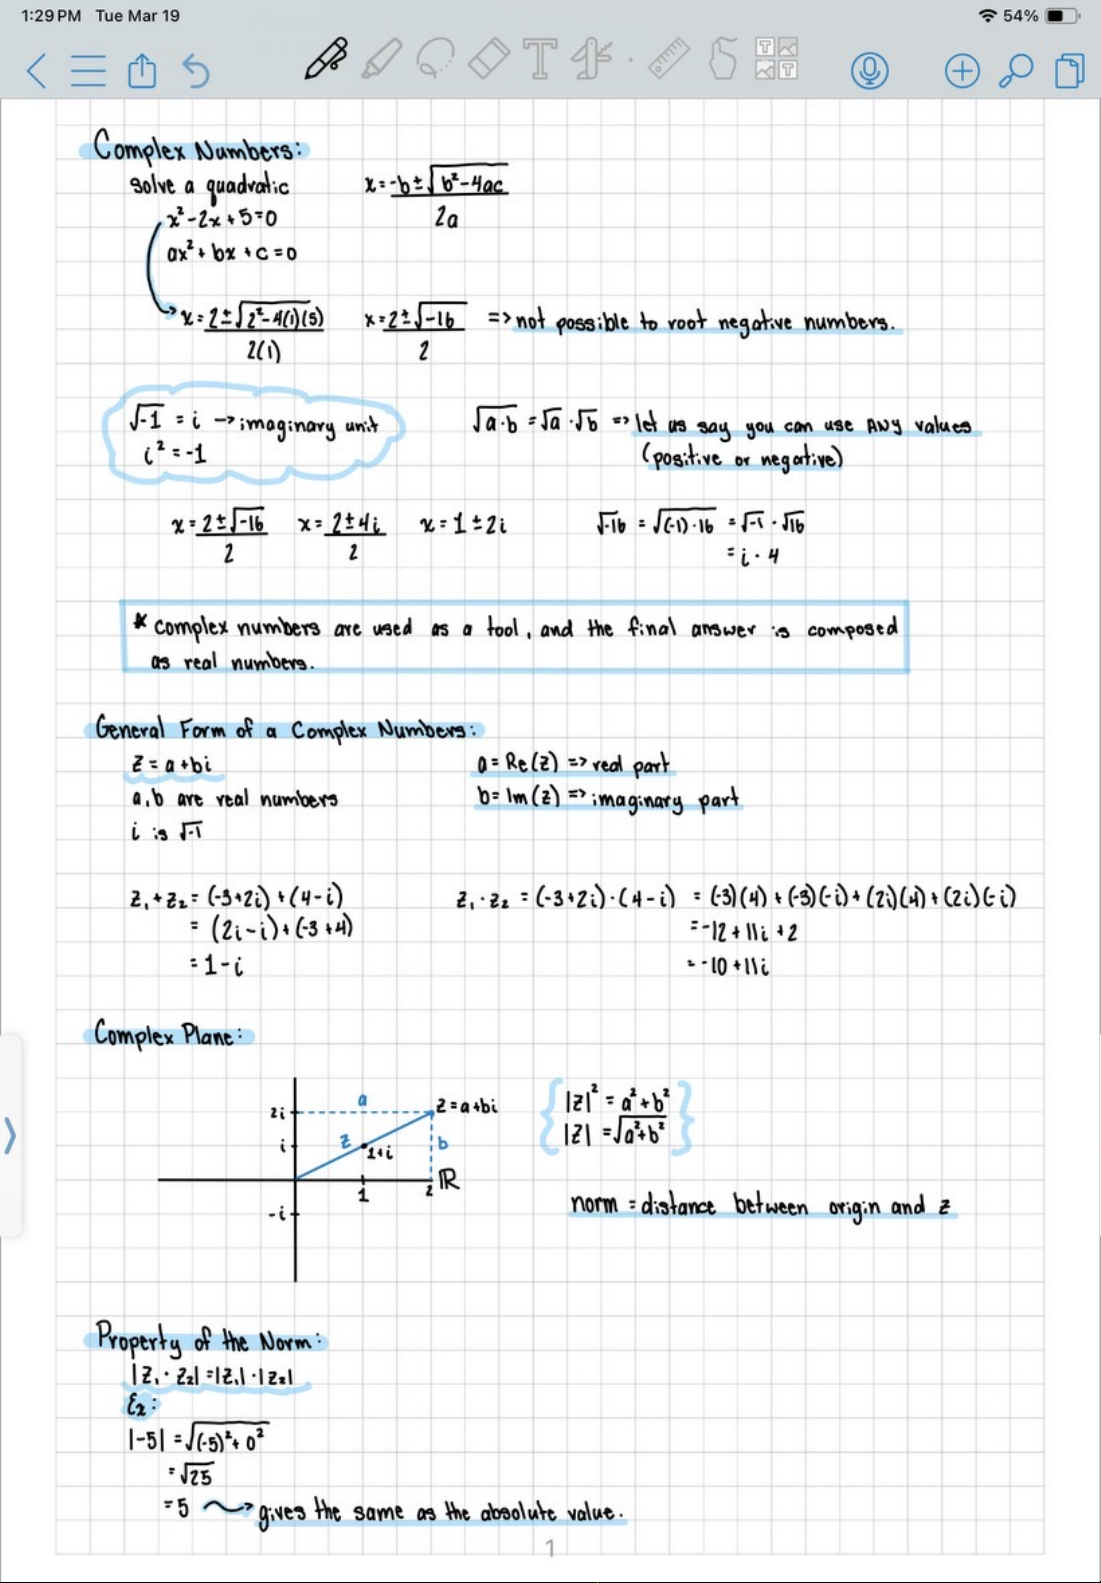 1:29 PM Tue Mar 19 54%
Complex Numbers:
solve a quadratic x = -b ± √(b² - 4ac) / 2a
x² - 2x + 5 = 0
ax² + bx + c = 0
x = 2 ± √(2² - 4(1)(5)) / 2(1) x = 2 ± √-16 / 2 => not possible to root negative numbers.
√-1 = i -> imaginary unit √a·b = √a · √b => let us say you can use ANY values
i² = -1 (positive or negative)
x = 2 ± √-16 / 2 x = 2 ± 4i / 2 x = 1 ± 2i √-16 = √(-1)·16 = √-1 · √16
= i · 4
* complex numbers are used as a tool, and the final answer is composed
as real numbers.
General Form of a Complex Numbers:
z = a + bi a = Re(z) => real part
a, b are real numbers b = Im(z) => imaginary part
i is √-1
z₁ + z₂ = (-3+2i) + (4-i) z₁ · z₂ = (-3+2i) · (4-i) = (-3)(4) + (-3)(-i) + (2i)(4) + (2i)(-i)
= (2i-i) + (-3+4) = -12 + 11i + 2
= 1 - i = -10 + 11i
Complex Plane:
a
2i z = a+bi |z|² = a² + b²
i z 1+i b |z| = √a²+b²
1 2 ℝ
-i norm = distance between origin and z
Property of the Norm:
|z₁ · z₂| = |z₁| · |z₂|
Ex:
|-5| = √(-5)² + 0²
= √25
= 5 ~> gives the same as the absolute value.
1